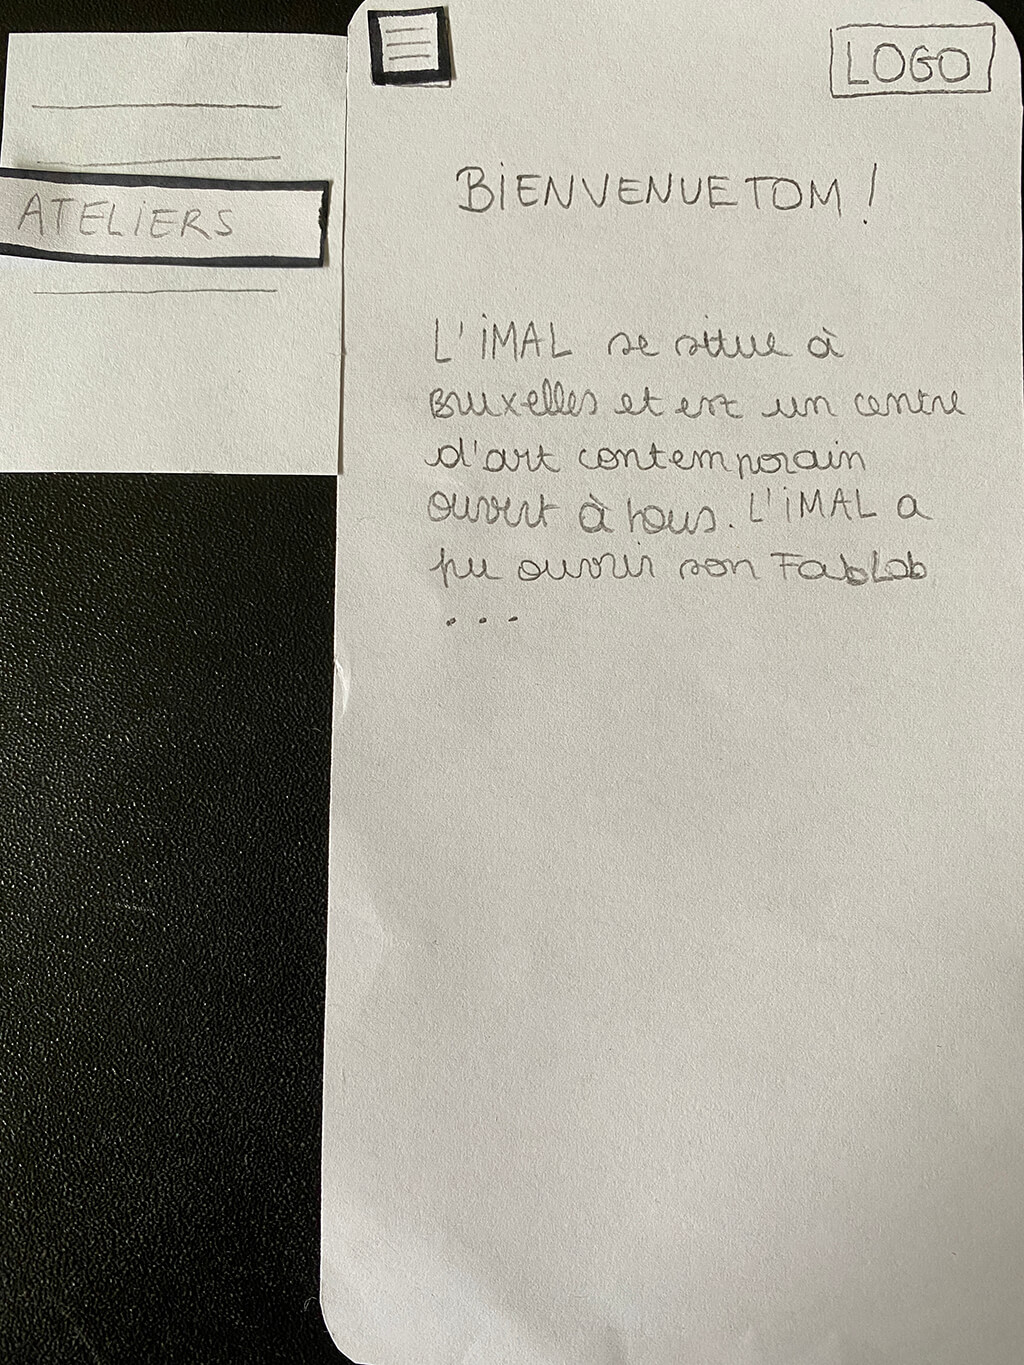 LOGO
BIENVENUE TOM !
ATELIERS
L'iMAL se situe à
Bruxelles et est un centre
d'art contemporain
ouvert à tous. L'iMAL a
pu ouvrir son FabLab
...